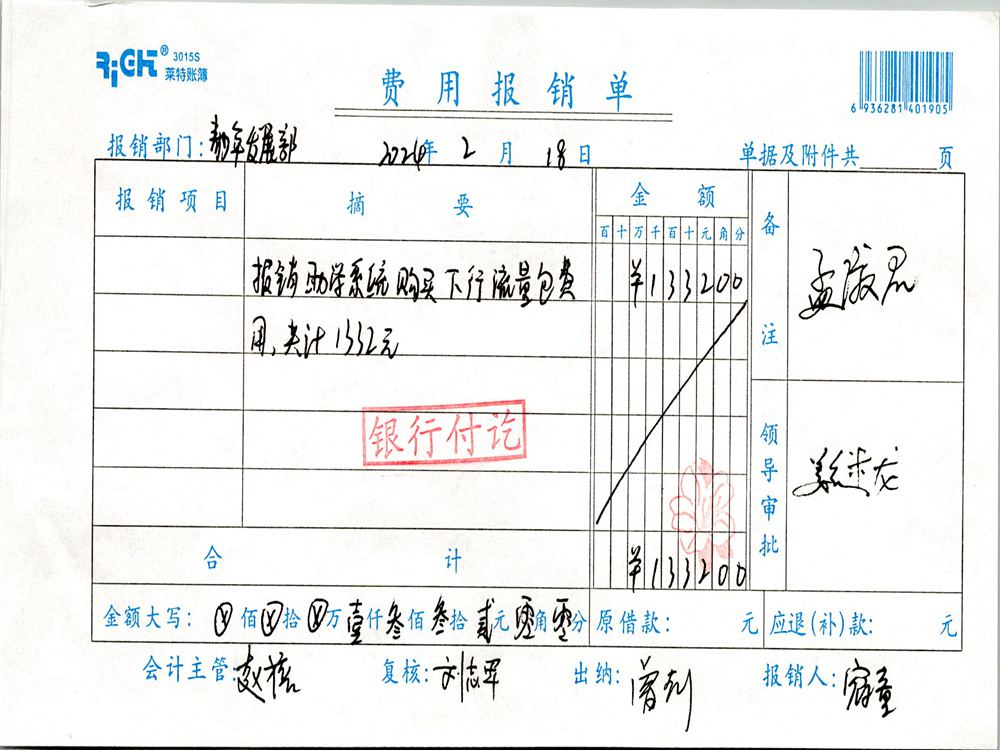 RiCH® 3015S
莱特账簿
费用报销单
6 936281 401905
报销部门：青年发展部 2024年 2月 18日 单据及附件共 页
报销项目 摘要 金额 备注
百十万千百十元角分
报销助学系统购买下行流量包费 ¥133200
用，共计1332元
银行付讫
领导审批
合计 ¥133200
金额大写：ⓧ佰ⓧ拾ⓧ万壹仟叁佰叁拾贰元零角零分 原借款： 元 应退(补)款： 元
会计主管： 复核：刘志军 出纳：曾刘 报销人：